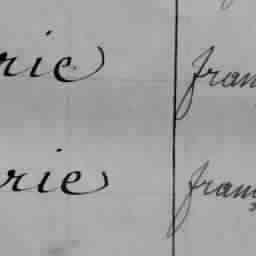 rie fran
rie fran